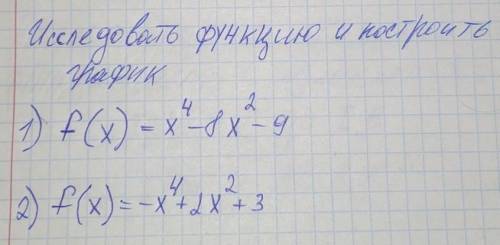 Исследовать функцию и построить
график
1) f(x) = x⁴ - 8x² - 9
2) f(x) = -x⁴ + 2x² + 3